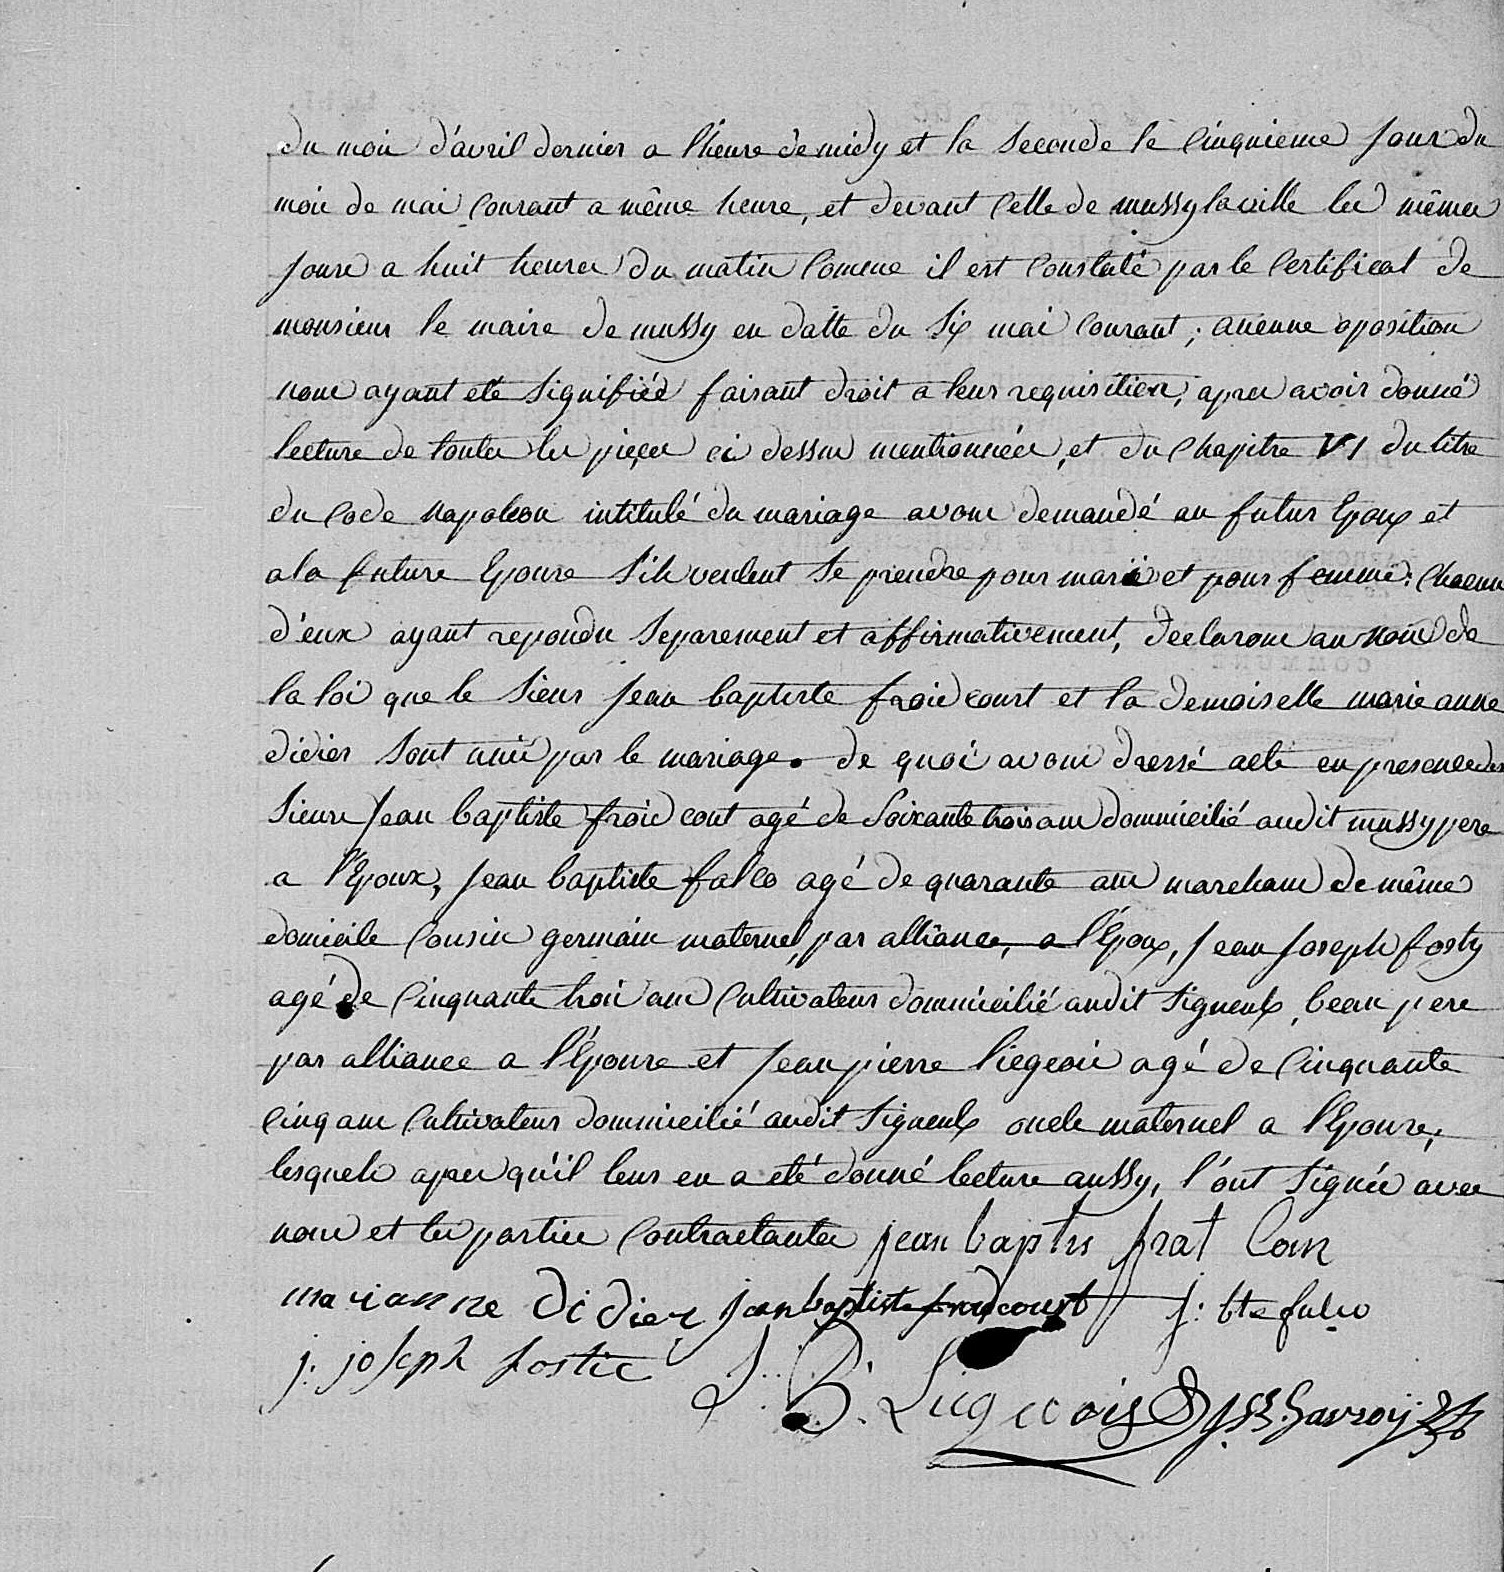 du mois d'avril dernier a l'heure de midy et la seconde le cinquieme jour du
mois de mai courant a même heure, et devant celle de mussylaville les mêmes
jours a huit heures du matin comme il est constaté par le certificat de
monsieur le maire de mussy en datte du six mai courant ; aucune oposition
nous ayant eté signifiée faisant droit a leur requisition, apres avoir donné
lecture de toutes les pieçes ci dessus mentionnées, et du chapitre VI du titre
du code napoleon intitulé du mariage avons demandé au futur Epoux et
a la future Epouse s'ils veulent se prendre pour mari et pour femme : chacun
d'eux ayant repondu separement et affirmativement, declarons au nom de
la loi que le sieur jean baptiste froidcourt et la demoiselle marie anne
didier sont unis par le mariage. de quoi avons dressé acte en presence des
sieurs jean baptiste froidcout agé de soixante trois ans domicilié audit mussy pere
a l'Epoux, jean baptiste falco agé de quarante ans marchand de même
domicile cousin germain maternel, par alliance, a l'Époux, jean joseph fosty
agé de cinquante trois ans cultivateur domicilié audit signeulx, beau pere
par alliance a l'Épouse et jean pierre liegeois agé de cinquante
cinq ans cultivateur domicilié audit signeulx oncle maternel a l'Epouse,
lesquels apres qu'il leur en a eté donné lecture aussy, l'ont signée avec
nous et les parties contractantes jean baptis frat Cour
marianne didier jean baptiste froidcourt j: bte falco
j. joseph fostie
J. P. Liegeois Gavroy